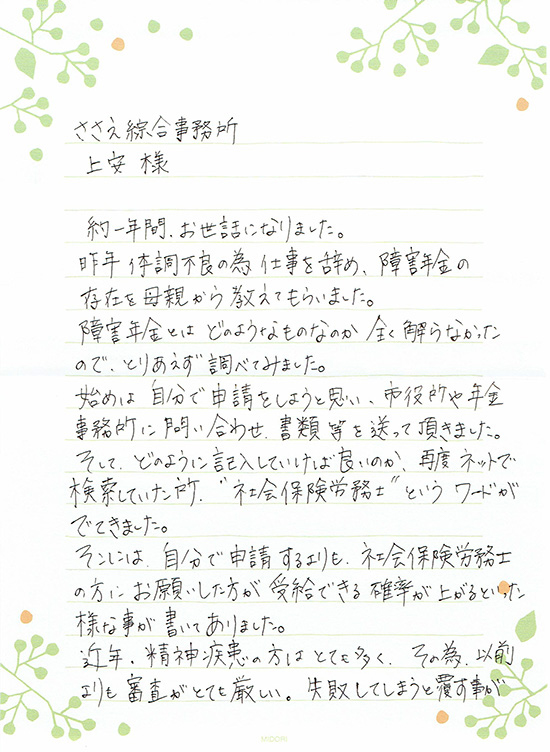 ささえ綜合事務所
上安 様
約一年間、お世話になりました。
昨年 体調不良の為 仕事を辞め、障害年金の
存在を母親から教えてもらいました。
障害年金とは どのようなものなのか 全く解らなかった
ので、とりあえず調べてみました。
始めは 自分で申請をしようと思い、市役所や年金
事務所に問い合わせ、書類等を送って頂きました。
そして、どのように記入していけば良いのか、再度ネットで
検索していた所、"社会保険労務士"という ワードが
でてきました。
そこには、自分で申請するよりも、社会保険労務士
の方にお願いした方が 受給できる確率が上がるといった
様な事が書いてありました。
近年、精神疾患の方は とても多く、その為、以前
よりも審査がとても厳しい。失敗してしまうと覆す事が
MIDORI